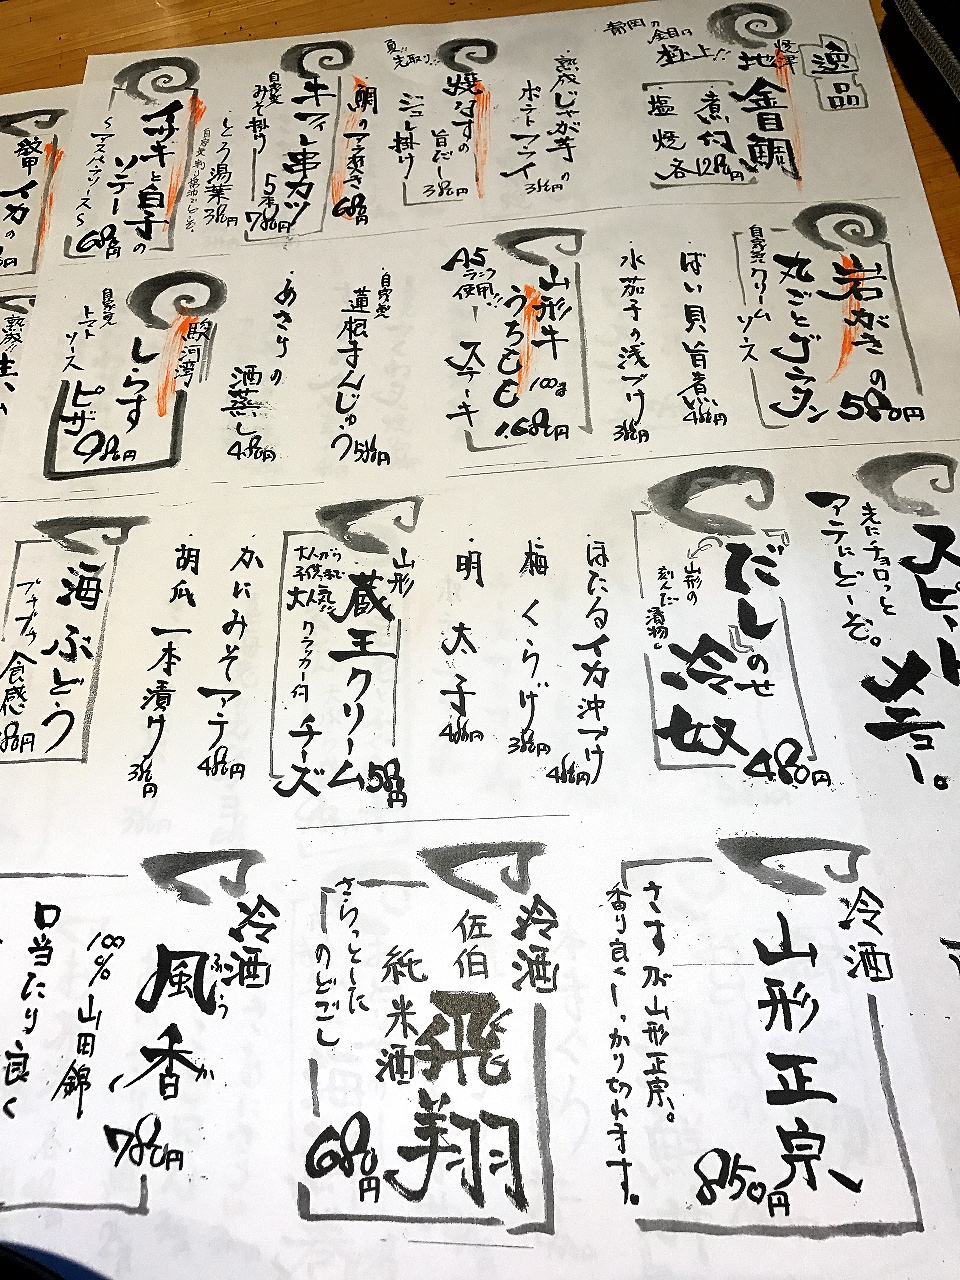 逸品
静岡の
金目の
極上!!
焼津
地金目鯛
煮付
塩焼
各1280円
熟成じゃが芋の
ポテトフライ
380円
夏!!
先取り!!
焼なすの
旨だし
ジュレ掛け
380円
鯛のアラ炊き
680円
牛フィレ串カツ
自家製
みそ掛け
5本
780円
とろ湯葉
380円
イサキと白子の
ソテー
680円
イカの
岩がきの
丸ごとグラタン
自家製クリームソース
580円
ばい貝旨煮
480円
水茄子の浅づけ
380円
山形牛
うちもも
100g
A5
ランク
使用!!
ステーキ
1,680円
自家製
蓮根まんじゅう
580円
あさりの
酒蒸し
480円
駿河湾
しらす
ピザ
自家製
トマト
ソース
980円
熟成!!
スピード
メニュー。
先にチョロっと
アテにどーぞ。
だしのせ
冷奴
山形の
刻んだ
漬物。
480円
ほたるイカ沖づけ
480円
梅くらげ
380円
明太子
480円
山形
蔵王クリーム
チーズ
大人から
子供まで
大人気!!
クラッカー付
580円
かにみそアテ
480円
胡瓜一本漬け
380円
海ぶどう
プチプチ
食感
冷酒
山形正宗
さすが山形正宗。
香り良くしっかり切れます。
850円
冷酒
佐伯
飛翔
純米酒
さらっとした
のどごし
680円
冷酒
風香
ふうか
100%山田錦
口当たり良く
780円